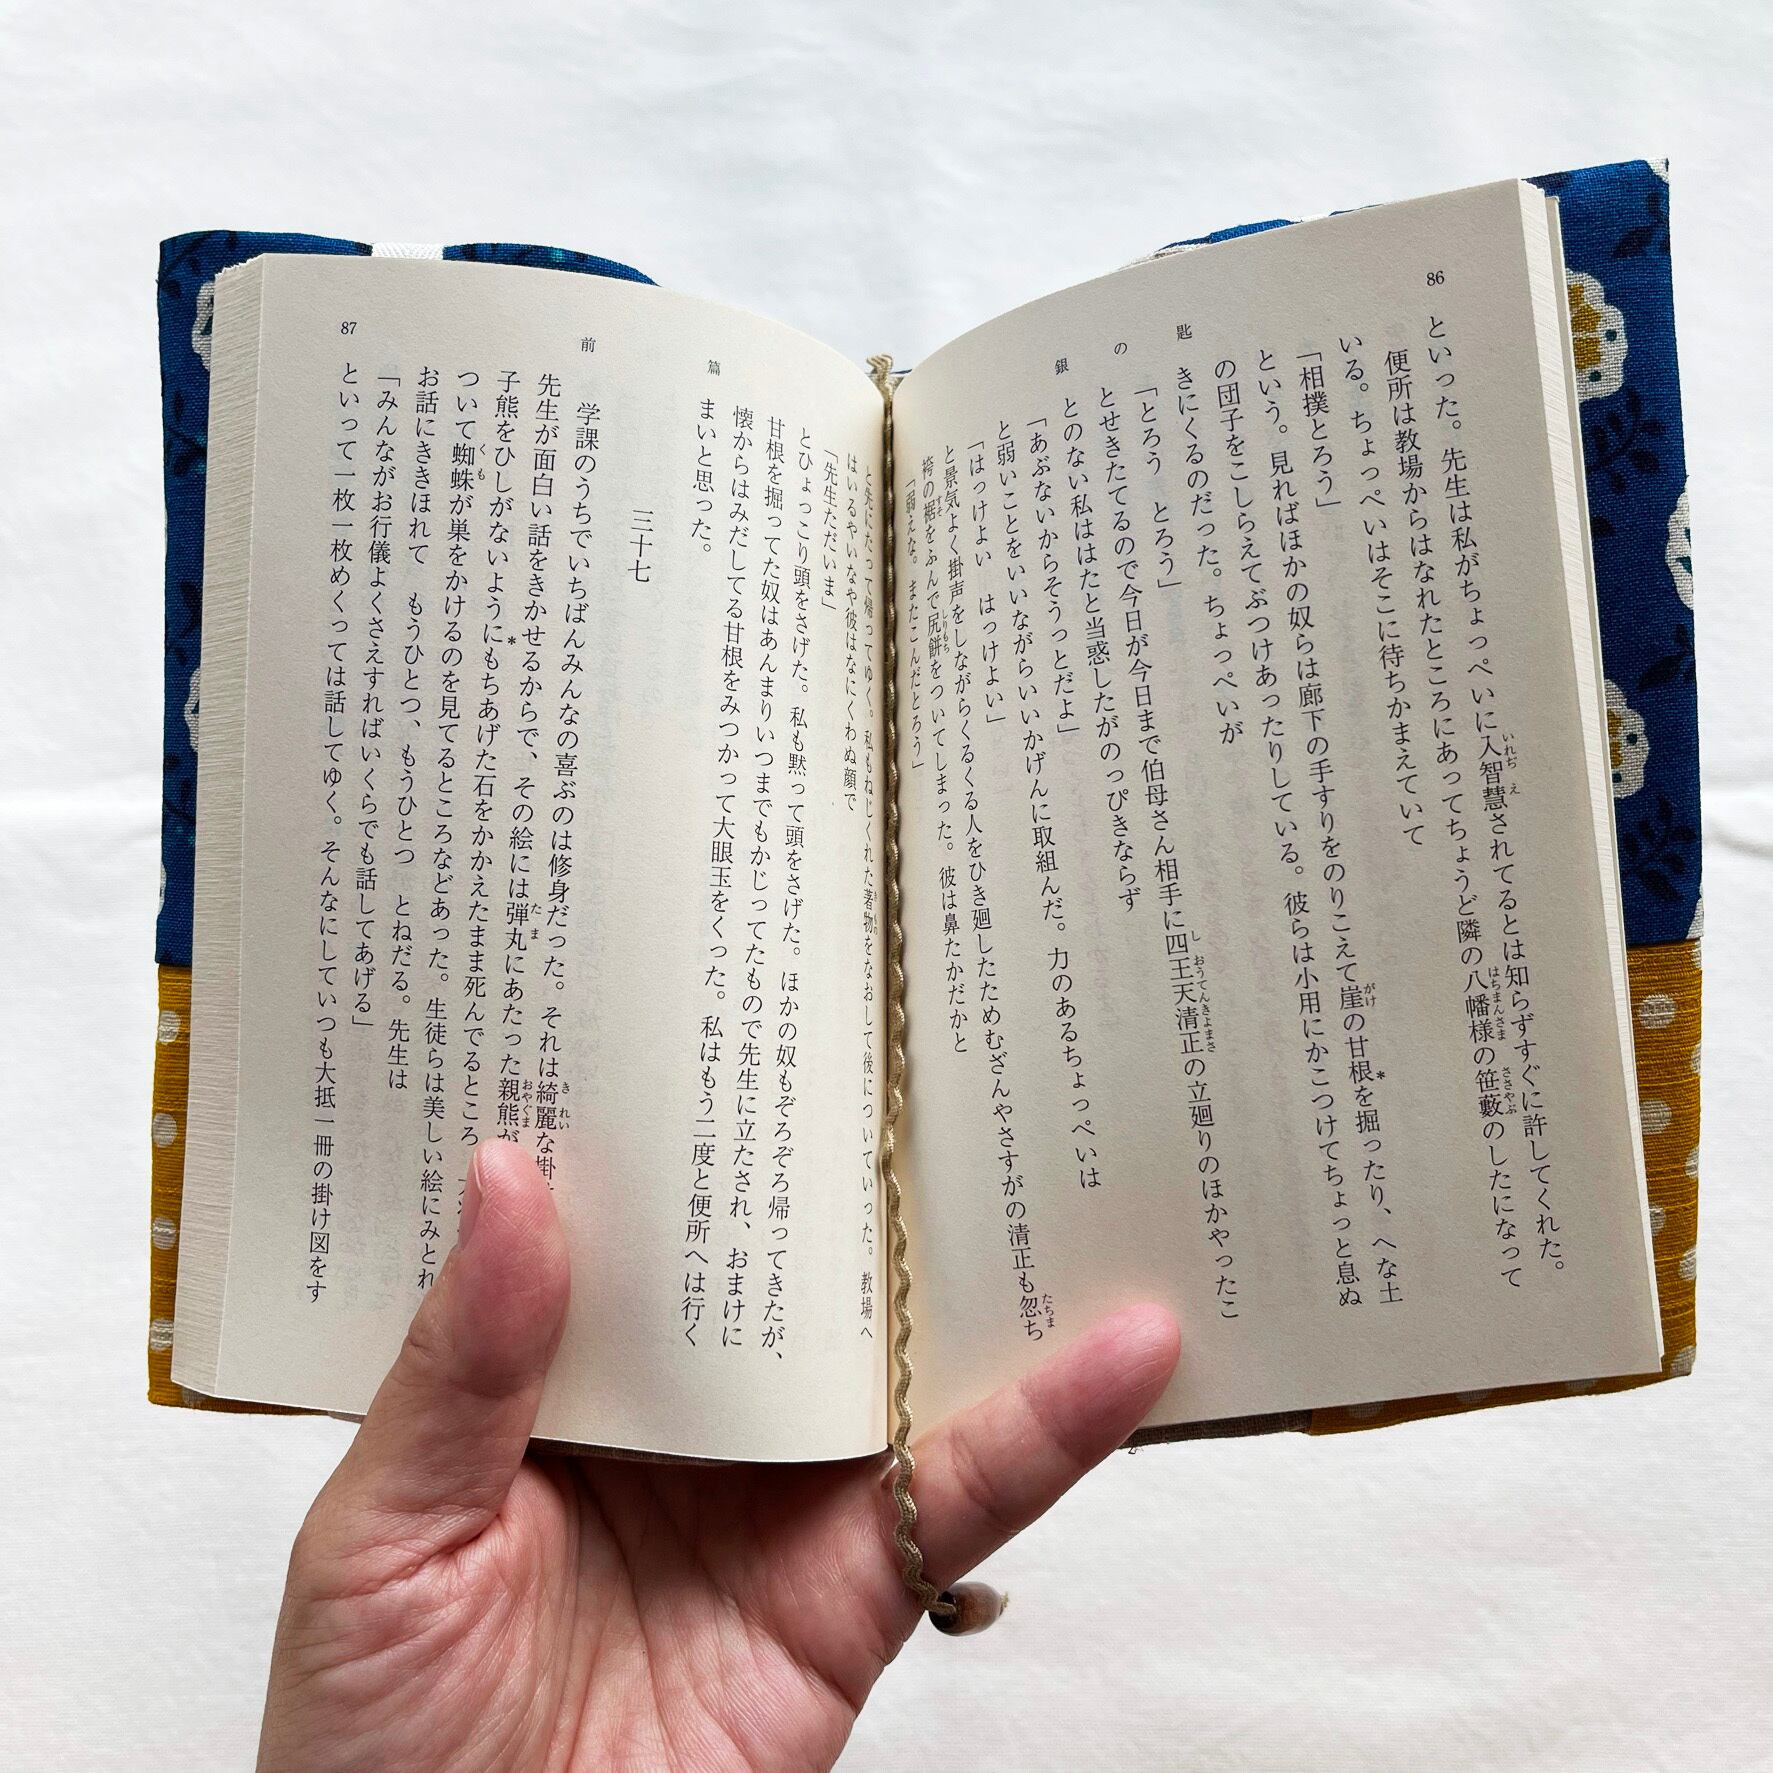 86
銀の匙
といった。先生は私がちょっぺいに入智慧されてるとは知らずすぐに許してくれた。
便所は教場からはなれたところにあってちょうど隣の八幡様の笹藪のしたになって
いる。ちょっぺいはそこに待ちかまえていて
「相撲とろう」
という。見ればほかの奴らは廊下の手すりをのりこえて崖の甘根*を掘ったり、へな土
の団子をこしらえてぶつけあったりしている。彼らは小用にかこつけてちょっと息ぬ
きにくるのだった。ちょっぺいが
「とろう　とろう」
とせきたてるので今日が今日まで伯母さん相手に四王天清正の立廻りのほかやったこ
とのない私ははたと当惑したがのっぴきならず
「あぶないからそうっとだよ」
と弱いことをいいながらいいかげんに取組んだ。力のあるちょっぺいは
「はっけよい　はっけよい」
と景気よく掛声をしながらくる人をひき廻したためむざんやさすがの清正も忽ち
袴の裾をふんで尻餅をついてしまった。彼は鼻たかだかと
「弱えな。またこんだとろう」
87
前篇
と先にたって帰ってゆく。私もねじくれた着物をなおして後についていった。教場へ
はいるやいなや彼はなにくわぬ顔で
「先生ただいま」
とひょっこり頭をさげた。私も黙って頭をさげた。ほかの奴もぞろぞろ帰ってきたが、
甘根を掘ってた奴はあんまりいつまでもかじってたもので先生に立たされ、おまけに
懐からはみだしてる甘根をみつかって大眼玉をくった。私はもう二度と便所へは行く
まいと思った。
三十七
学課のうちでいちばんみんなの喜ぶのは修身だった。それは綺麗な掛
先生が面白い話をきかせるからで、その絵には弾丸にあたった親熊が
子熊をひしがないように*もちあげた石をかかえたまま死んでるところ
ついて蜘蛛が巣をかけるのを見てるところなどあった。生徒らは美しい絵にみとれ
お話にききほれて　もうひとつ、もうひとつ　とねだる。先生は
「みんながお行儀よくさえすればいくらでも話してあげる」
といって一枚一枚めくっては話してゆく。そんなにしていつも大抵一冊の掛け図をす